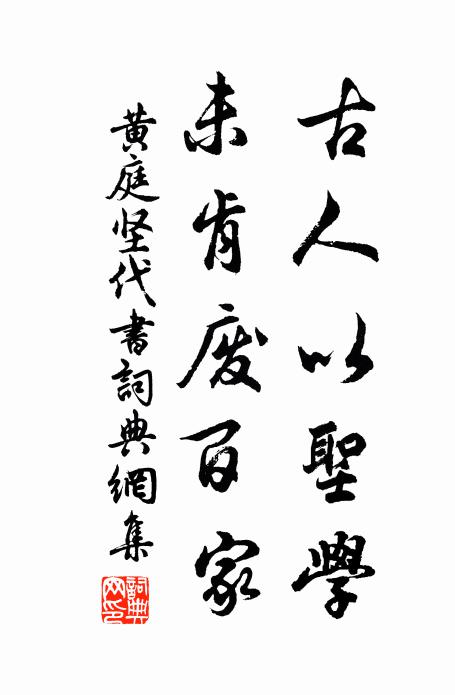 古人以聖學
未肯废百家
黄庭坚代書詞典網集
詞典網印